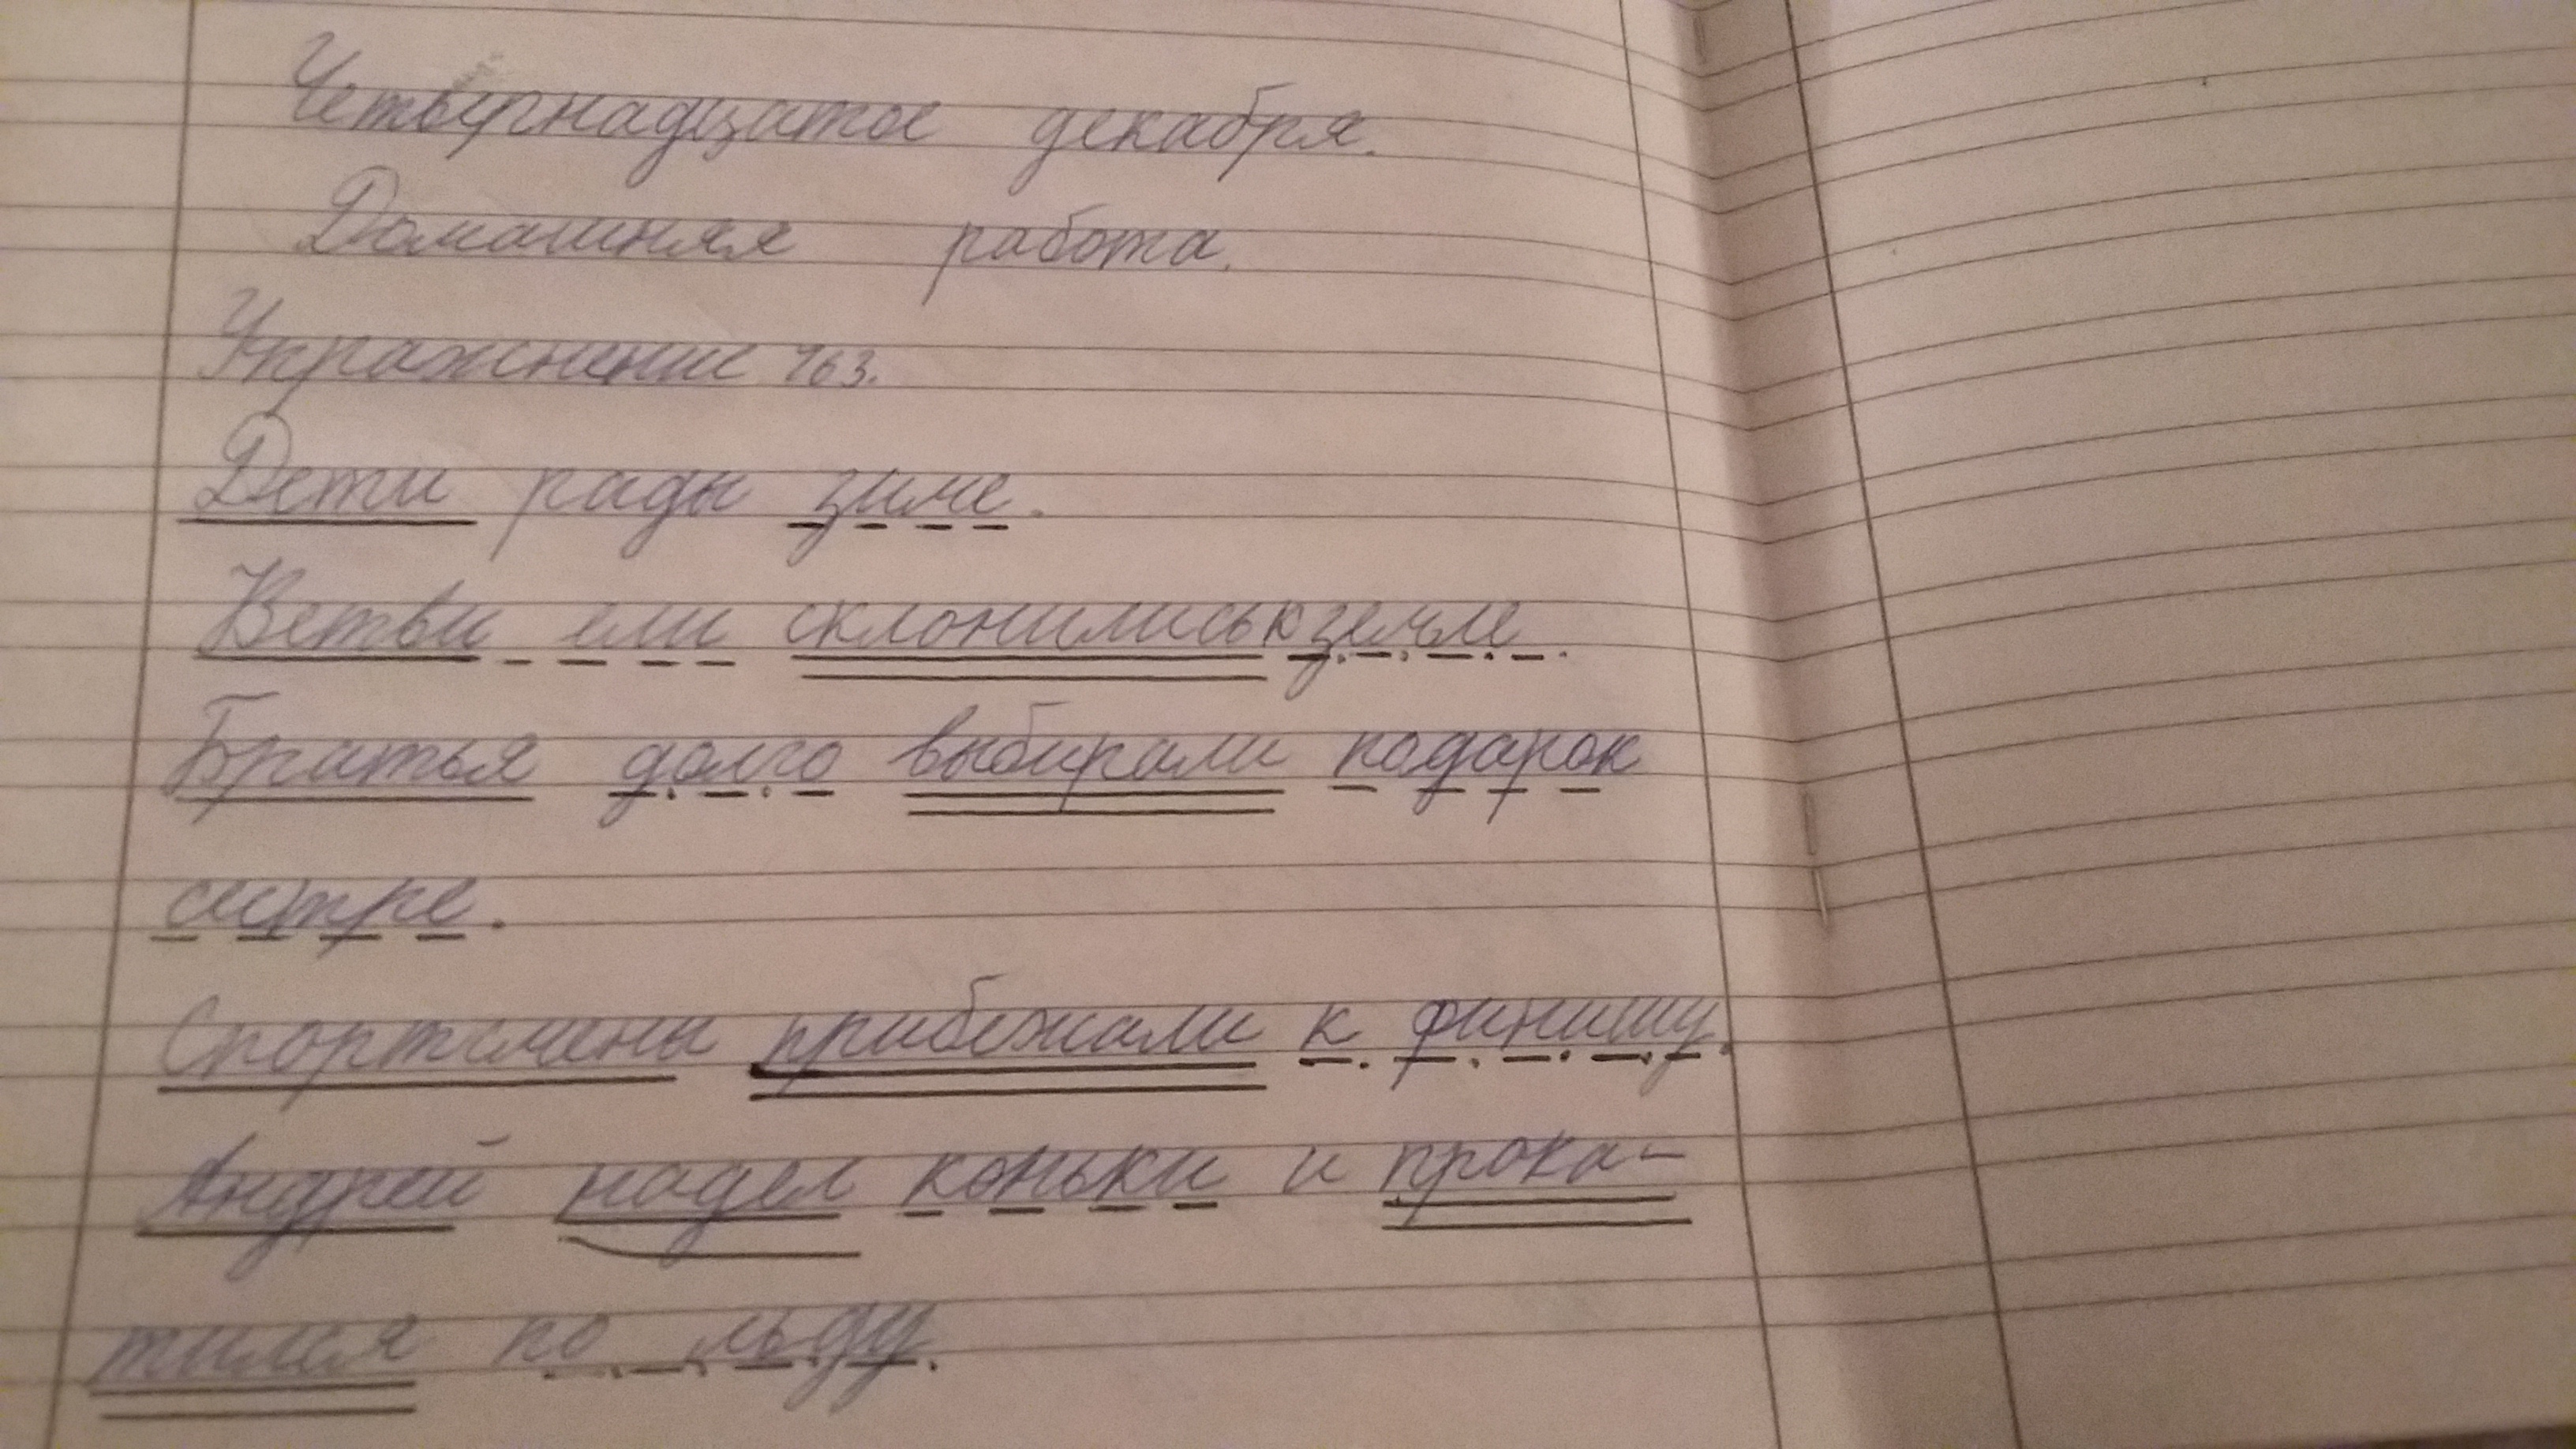 Четвёрнадцатое декабря.
Домашняя работа.
Упражнение 463.
Дети рады зиме.
Ветви ели склонились к земле.
Братья долго выбирали подарок
сестре.
Спортсмены прибежали к финишу.
Андрей надел коньки и прока-
тился по льду.